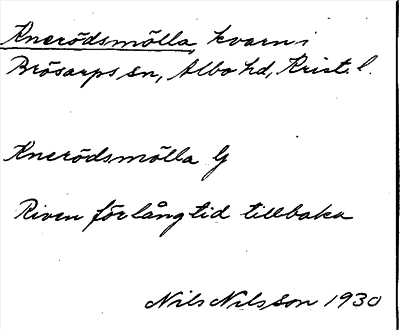 Knerödsmölla, kvarn i
Brösarps sn, Albo hd, Krist. l.
Knerödsmölla G
Riven för lång tid tillbaka
Nils Nilsson 1930